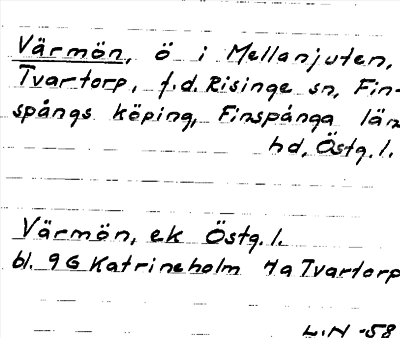 Värmön, ö i Mellanjuten,
Tvartorp, f.d. Risinge sn, Fin-
spångs köping, Finspånga län
hd, Östg.l.
Värmön, ek Östg.l.
bl. 9G Katrineholm 7a Tvartorp
L.N -58